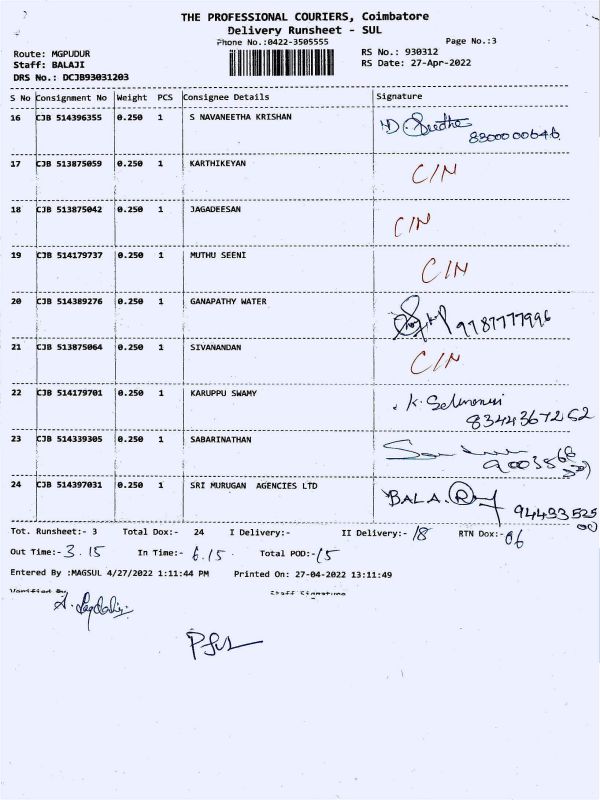 THE PROFESSIONAL COURIERS, Coimbatore
Delivery Runsheet - SUL
Phone No.:0422-3505555 Page No.:3
Route: MGPUDUR RS No.: 930312
Staff: BALAJI RS Date: 27-Apr-2022
DRS No.: DCJB93031203
S No Consignment No Weight PCS Consignee Details Signature
16 CJB 514396355 0.250 1 S NAVANEETHA KRISHAN
8300000646
17 CJB 513875059 0.250 1 KARTHIKEYAN C/N
18 CJB 513875042 0.250 1 JAGADEESAN C/N
19 CJB 514179737 0.250 1 MUTHU SEENI C/N
20 CJB 514389276 0.250 1 GANAPATHY WATER 9787777996
21 CJB 513875064 0.250 1 SIVANANDAN C/N
22 CJB 514179701 0.250 1 KARUPPU SWAMY K.
8344367262
23 CJB 514339305 0.250 1 SABARINATHAN
24 CJB 514397031 0.250 1 SRI MURUGAN AGENCIES LTD BALA.
94433525
00
Tot. Runsheet:- 3 Total Dox:- 24 I Delivery:- II Delivery:- 18 RTN Dox:- 06
Out Time:- 3.15 In Time:- 6.15 Total POD:- 15
Entered By :MAGSUL 4/27/2022 1:11:44 PM Printed On: 27-04-2022 13:11:49
Verified By Staff Signature